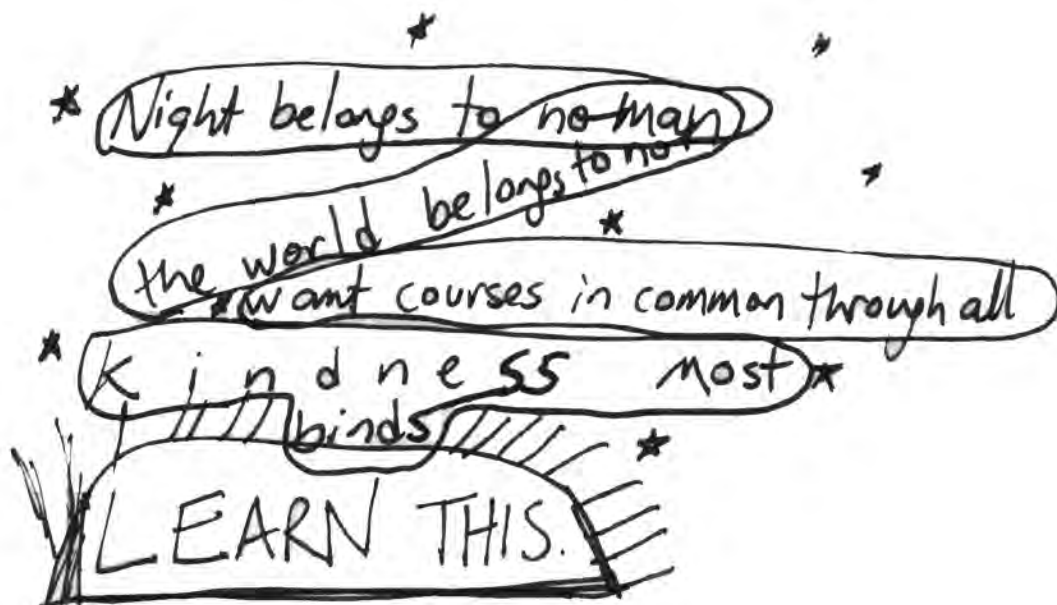 Night belongs to no man
the world belongs to no
want courses in common through all
kindness most
binds
LEARN THIS.